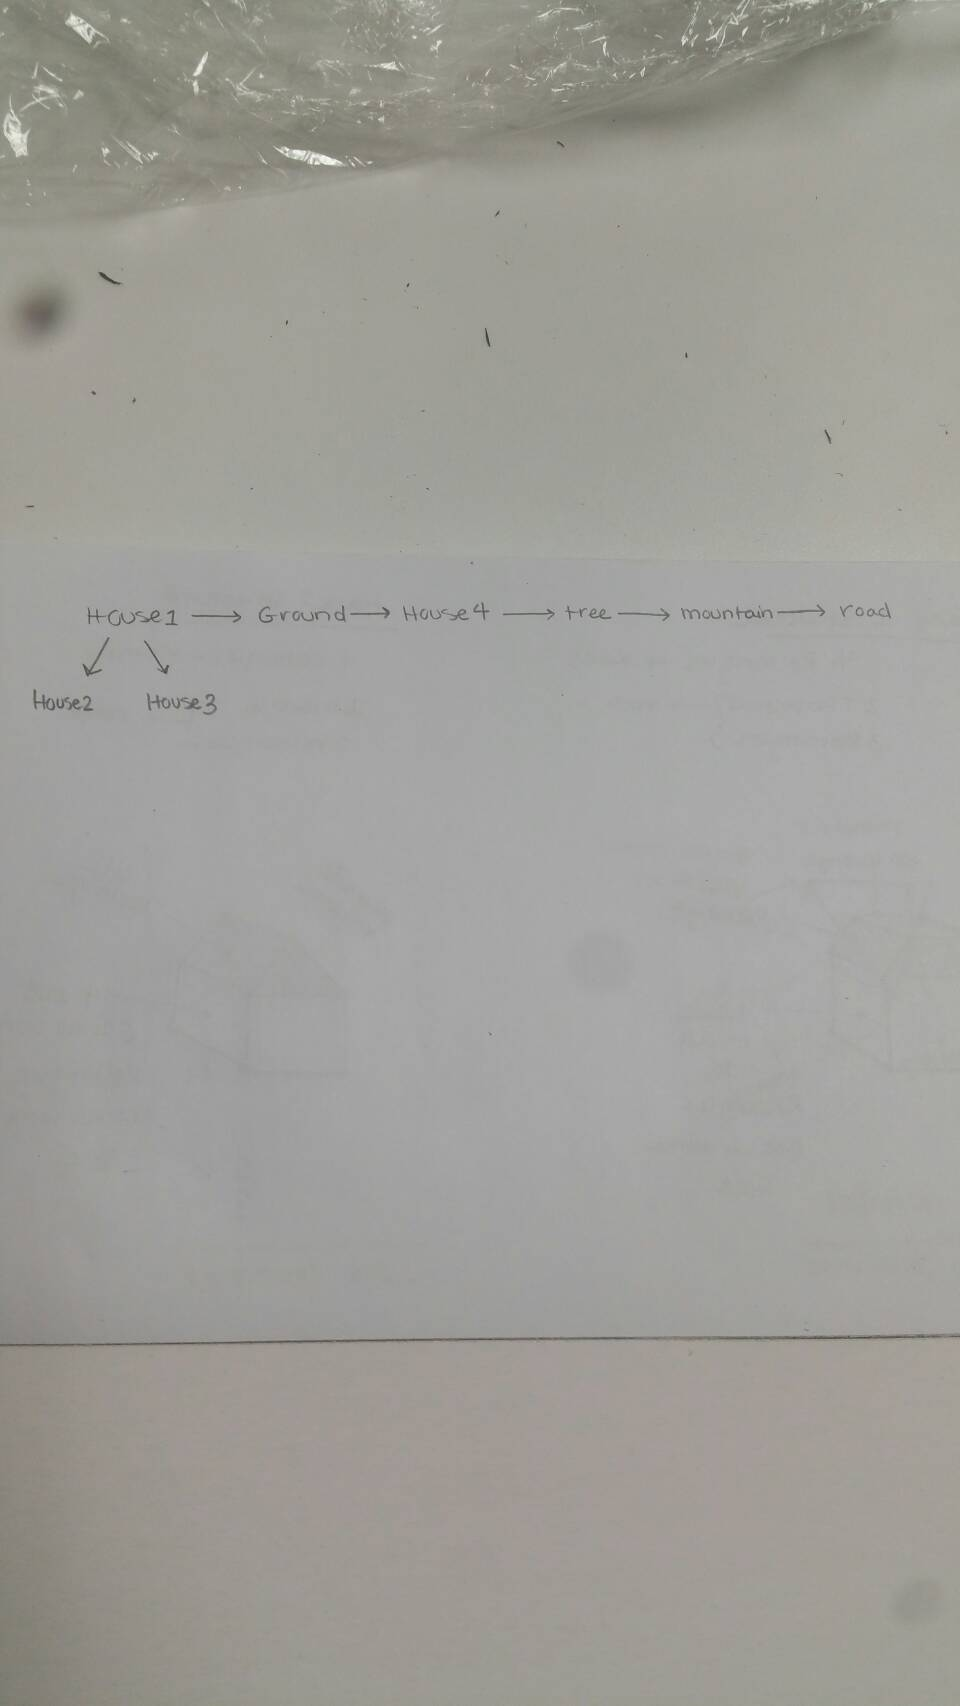 House1 → Ground → House4 → tree → mountain → road
House2 House3